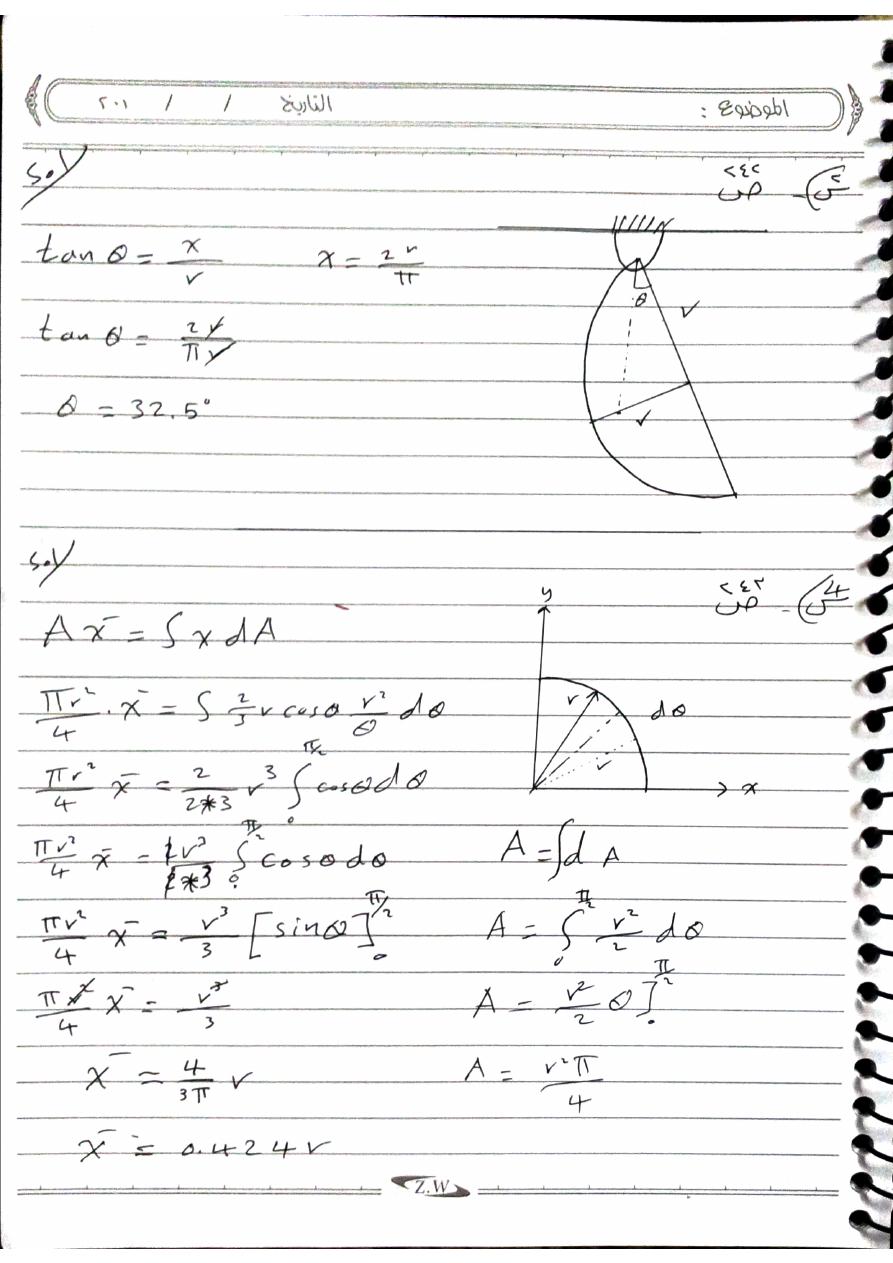 الموضوع : التاريخ / / ٢٠١
س٢ - ص ٢٤٢
sol
tan θ = x/r x = 2r/π
tan θ = 2r/πr
θ = 32.5°
θ
r
r
س4 - ص ٢٤٢
sol
A x̄ = ∫ x dA
πr²/4 . x̄ = ∫ 2/3 r cosθ r²/θ dθ
πr²/4 x̄ = 2/2*3 r³ ∫₀^π/2 cosθ dθ
πr²/4 x̄ = 2r³/2*3 ∫₀^π/2 cosθ dθ
πr²/4 x̄ = r³/3 [sinθ]₀^π/2
πr²/4 x̄ = r³/3
x̄ = 4/3π r
x̄ = 0.424r
y
r
dθ
r
x
A = ∫dA
A = ∫₀^π/2 r²/2 dθ
A = r²/2 θ]₀^π/2
A = r²π/4
Z.W